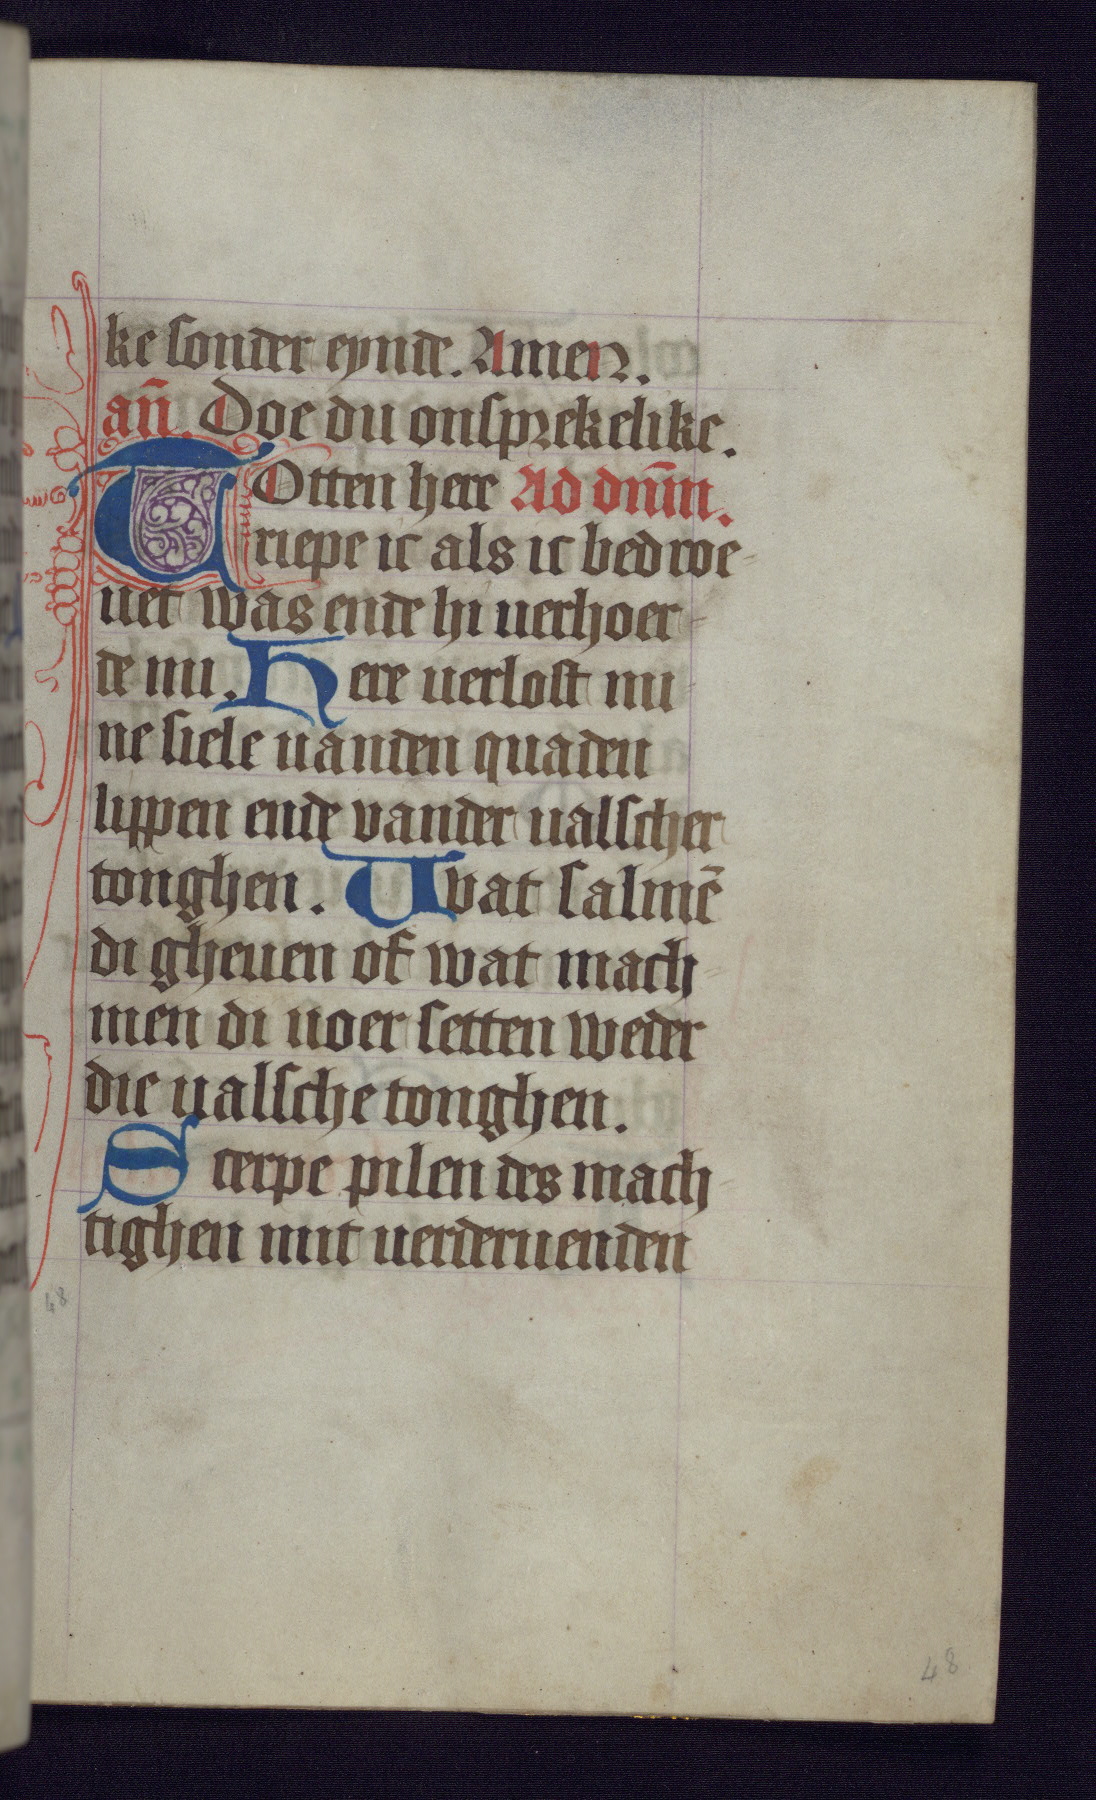 ke sonder eynde. Amen.
an̄. Doe du onsprekelike.
TOtten here Ad dn̄m.
riepe ic als ic bedroe-
uet was ende hi uerhoer-
de mi. Here uerlost mi
ne siele uanden quaden
lippen ende vander ualscher
tonghen. Wat salmē
di gheuen of wat mach-
men di uoer setten weder
die ualsche tonghen.
Scerpe pilen des mach-
tighen mit uerderuenden
48
48